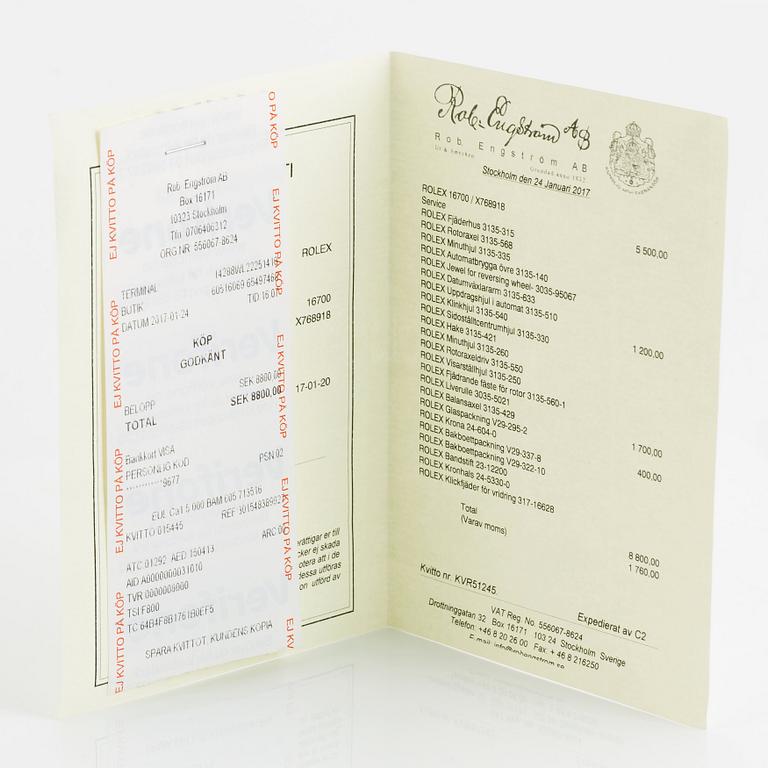 EJ KVITTO PÅ KÖP
EJ KVITTO PÅ KÖP
EJ KVITTO PÅ KÖP
EJ KVITTO PÅ KÖP
O PÅ KÖP
EJ KVITTO PÅ KÖP
EJ KVITTO PÅ KÖP
EJ KVITTO PÅ KÖP
EJ KV
Rob. Engström AB
Box 16171
10323 Stockholm
Tfn 0706406312
ORG NR 556067-8624
TERMINAL
BUTIK
DATUM 2017-01-24
KÖP
GODKÄNT
BELOPP SEK 8800,00
TOTAL SEK 8800,00
Bankkort VISA
PERSONLIG KOD PSN 02
9677
KVITTO 015445
ATC 01292 AED 150413
AID A0000000031010
TVR 0000008000
TSI F800
TC 64B4F8B1761B0EF5
SPARA KVITTOT, KUNDENS KOPIA
TI
ROLEX
16700
X768918
17-01-20
erättigar er till
cker ej skada
otera att i de
dessa utföras
on utförd av
Rob. Engström AB
Rob. Engström AB
Stockholm den 24 Januari 2017
ROLEX 16700 / X768918
Service 5 500,00
ROLEX Fjäderhus 3135-315
ROLEX Rotoraxel 3135-568
ROLEX Minuthjul 3135-335
ROLEX Automatbrygga övre 3135-140
ROLEX Jewel for reversing wheel- 3035-95067
ROLEX Datumväxlararm 3135-633
ROLEX Uppdragshjul i automat 3135-510 1 200,00
ROLEX Klinkhjul 3135-540
ROLEX Sidoställtcentrumhjul 3135-330
ROLEX Hake 3135-421
ROLEX Minuthjul 3135-260
ROLEX Rotoraxeldriv 3135-550
ROLEX Visarställhjul 3135-250
ROLEX Fjädrande fäste för rotor 3135-560-1
ROLEX Liverulle 3035-5021
ROLEX Balansaxel 3135-429
ROLEX Glaspackning V29-295-2 1 700,00
ROLEX Krona 24-604-0 400,00
ROLEX Bakboettpackning V29-337-8
ROLEX Bakboettpackning V29-322-10
ROLEX Bandstift 23-12200
ROLEX Kronhals 24-5330-0
ROLEX Klickfjäder för vridning 317-16628
Total 8 800,00
(Varav moms) 1 760,00
Kvitto nr. KVR51245 Expedierat av C2
VAT Reg. No. 556067-8624
Drottninggatan 32 Box 16171 103 24 Stockholm Sverige
Telefon: +46 8 20 26 00 Fax. + 46 8 216250
E-mail: info@robengstrom.se